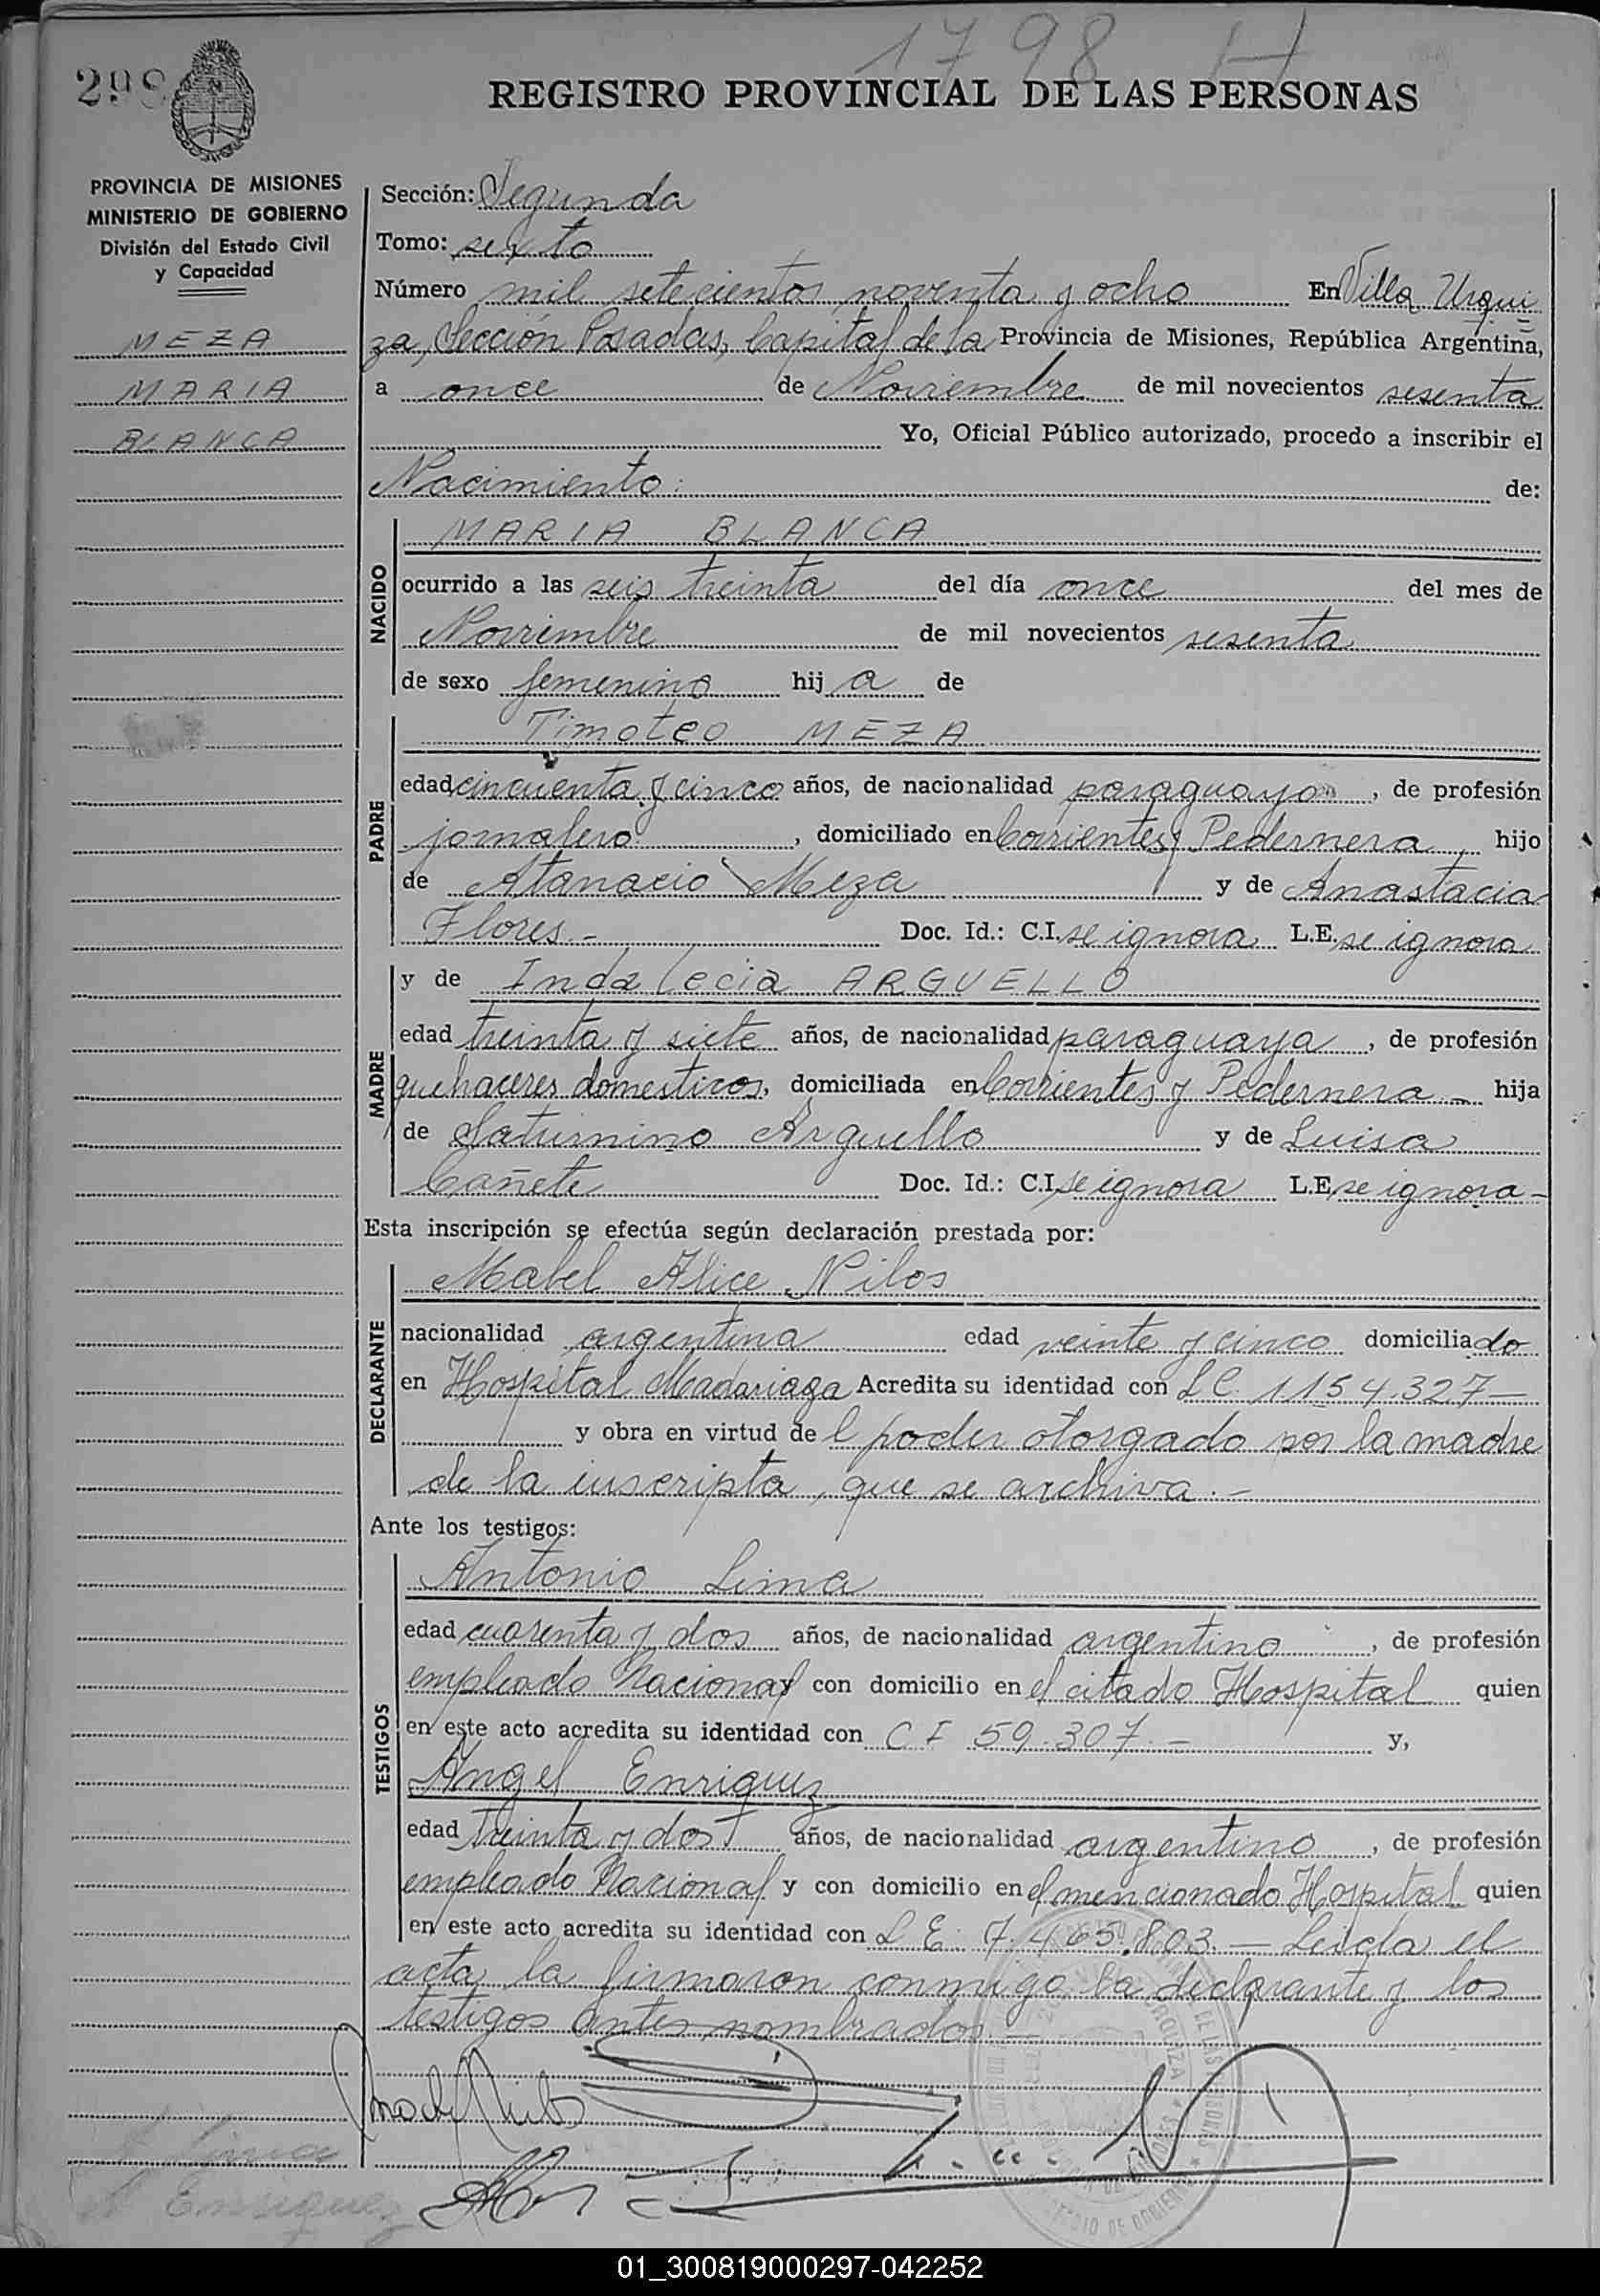 1798 H
298
REGISTRO PROVINCIAL DE LAS PERSONAS
PROVINCIA DE MISIONES
MINISTERIO DE GOBIERNO
División del Estado Civil
y Capacidad
MEZA
MARIA
BLANCA
Sección: Segunda
Tomo: sexto
Número mil setecientos noventa y ocho En Villa Urqui
za, Sección Posadas, Capital de la Provincia de Misiones, República Argentina,
a once de Noviembre de mil novecientos sesenta
Yo, Oficial Público autorizado, procedo a inscribir el
Nacimiento: de:
NACIDO
MARIA BLANCA
ocurrido a las seis treinta del día once del mes de
Noviembre de mil novecientos sesenta
de sexo femenino hija de
PADRE
Timoteo MEZA
edad cincuenta y cinco años, de nacionalidad paraguayo, de profesión
jornalero, domiciliado en Corrientes y Pedernera hijo
de Atanacio Meza y de Anastacia
Flores.- Doc. Id.: C.I. se ignora L.E. se ignora
MADRE
y de Indalecia ARGUELLO
edad treinta y siete años, de nacionalidad paraguaya, de profesión
quehaceres domesticos, domiciliada en Corrientes y Pedernera.- hija
de Saturnino Arguello y de Luisa
Cañete Doc. Id.: C.I. se ignora L.E. se ignora-
Esta inscripción se efectúa según declaración prestada por:
DECLARANTE
Mabel Alice Nilos
nacionalidad argentina edad veinte y cinco domiciliado
en Hospital Madariaga Acredita su identidad con L C. 1.154.327-
y obra en virtud del poder otorgado por la madre
de la inscripta, que se archiva.-
Ante los testigos:
TESTIGOS
Antonio Lima
edad cuarenta y dos años, de nacionalidad argentino, de profesión
empleado Nacional y con domicilio en el citado Hospital quien
en este acto acredita su identidad con C I 59.307.- y,
Angel Enriquez
edad treinta y dos años, de nacionalidad argentino, de profesión
empleado Nacional y con domicilio en el mencionado Hospital quien
en este acto acredita su identidad con L E. 7.465.803.- Leida el
acta, la firmaron conmigo la declarante y los
testigos antes nombrados.-
Lima
Enriquez
01_300819000297-042252